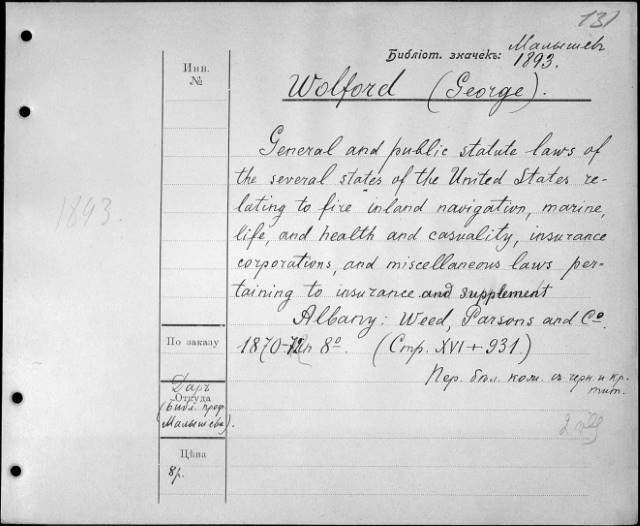 131
Малышев
Библіот. значекъ: 1893.
Инв.
№
Wolford (George).
General and public statute laws of
the several states of the United States re-
lating to fire inland navigation, marine,
life, and health and casuality, insurance
corporations, and miscellaneous laws per-
taining to insurance and supplement
Albany: Weed, Parsons and Co.
1893.
По заказу
1870-72 8º. (Стр. XVI + 931.)
Пер. бѣл. кож. съ черн. и кр.
тит.
Даръ
Откуда
(Библ. проф.
Малышева).
Цѣна
8р.